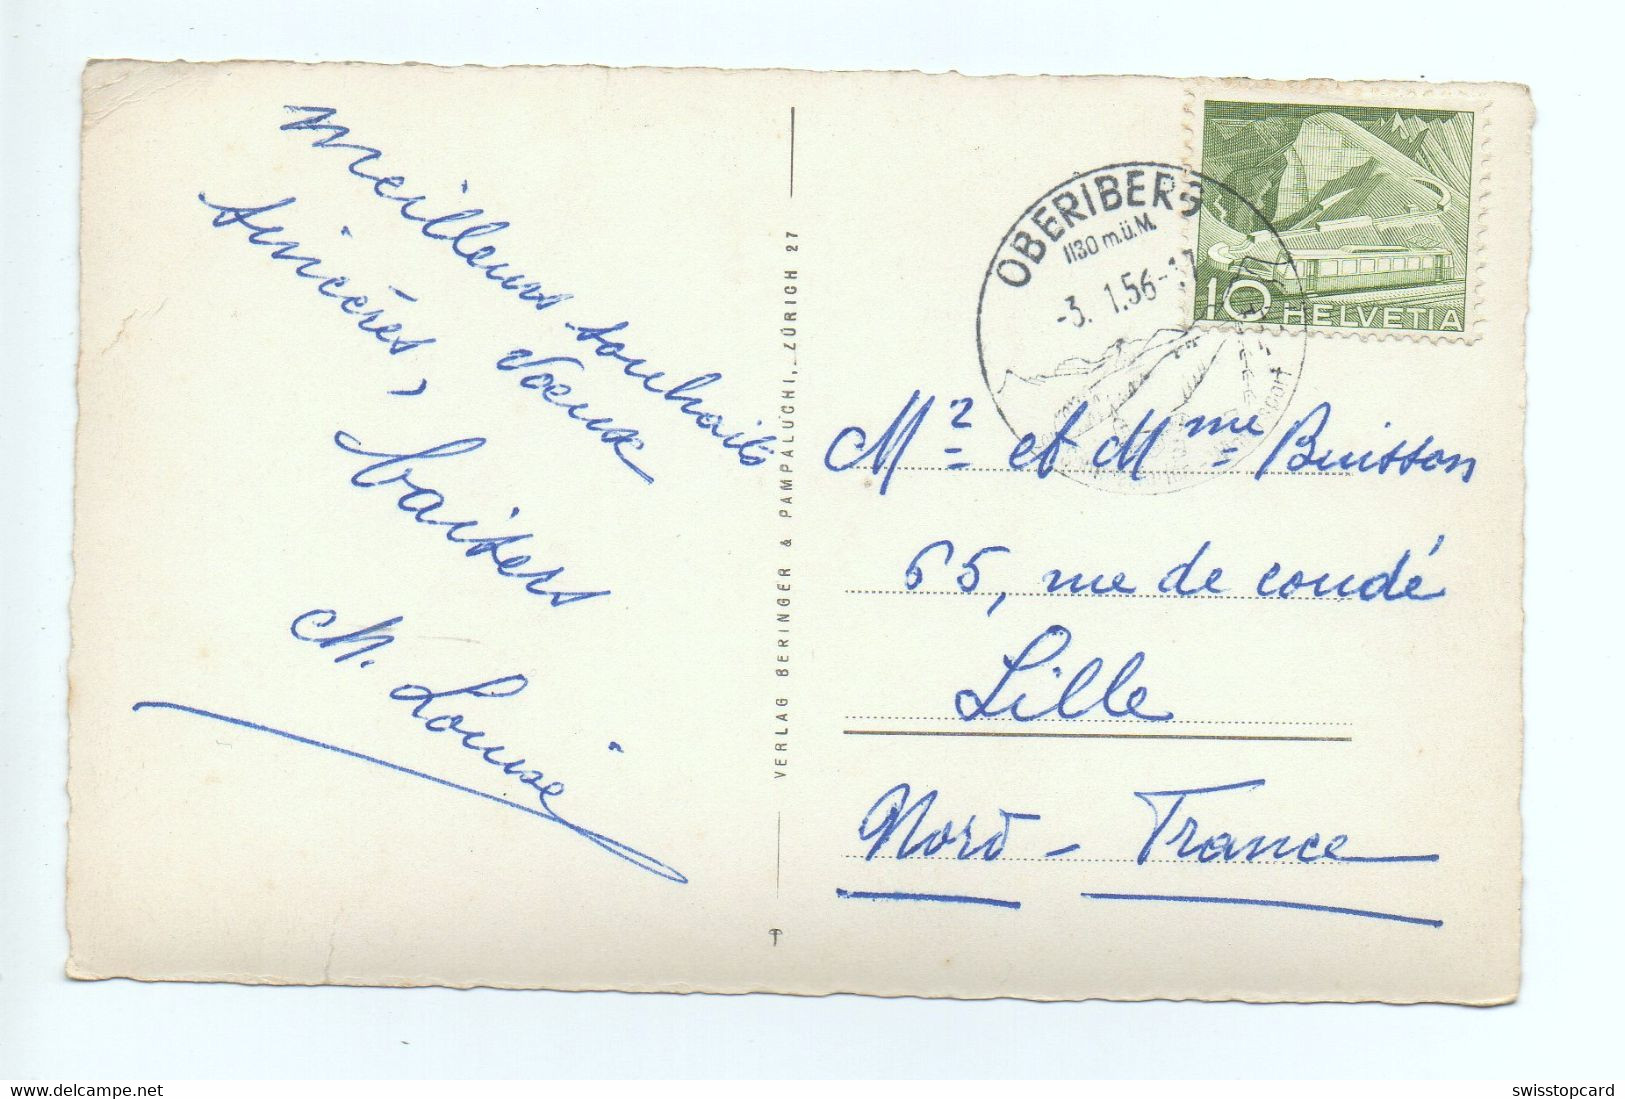 meilleurs souhaits
sincères, voeux
baisers
M. Louise
VERLAG BERINGER & PAMPALUCHI, ZÜRICH 27
OBERIBERG
1130 m.ü.M.
-3. 1.56-17
10 HELVETIA
Mr et Mme Buisson
65, rue de condé
Lille
Nord - France
delcampe.net
swisstopcard